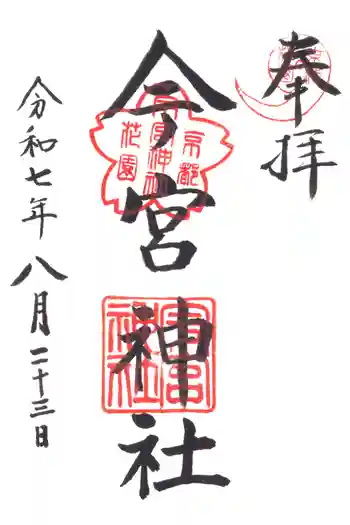 奉拝
今宮神社
令和七年八月二十三日
京都
今宮神社
花園
今宮神社